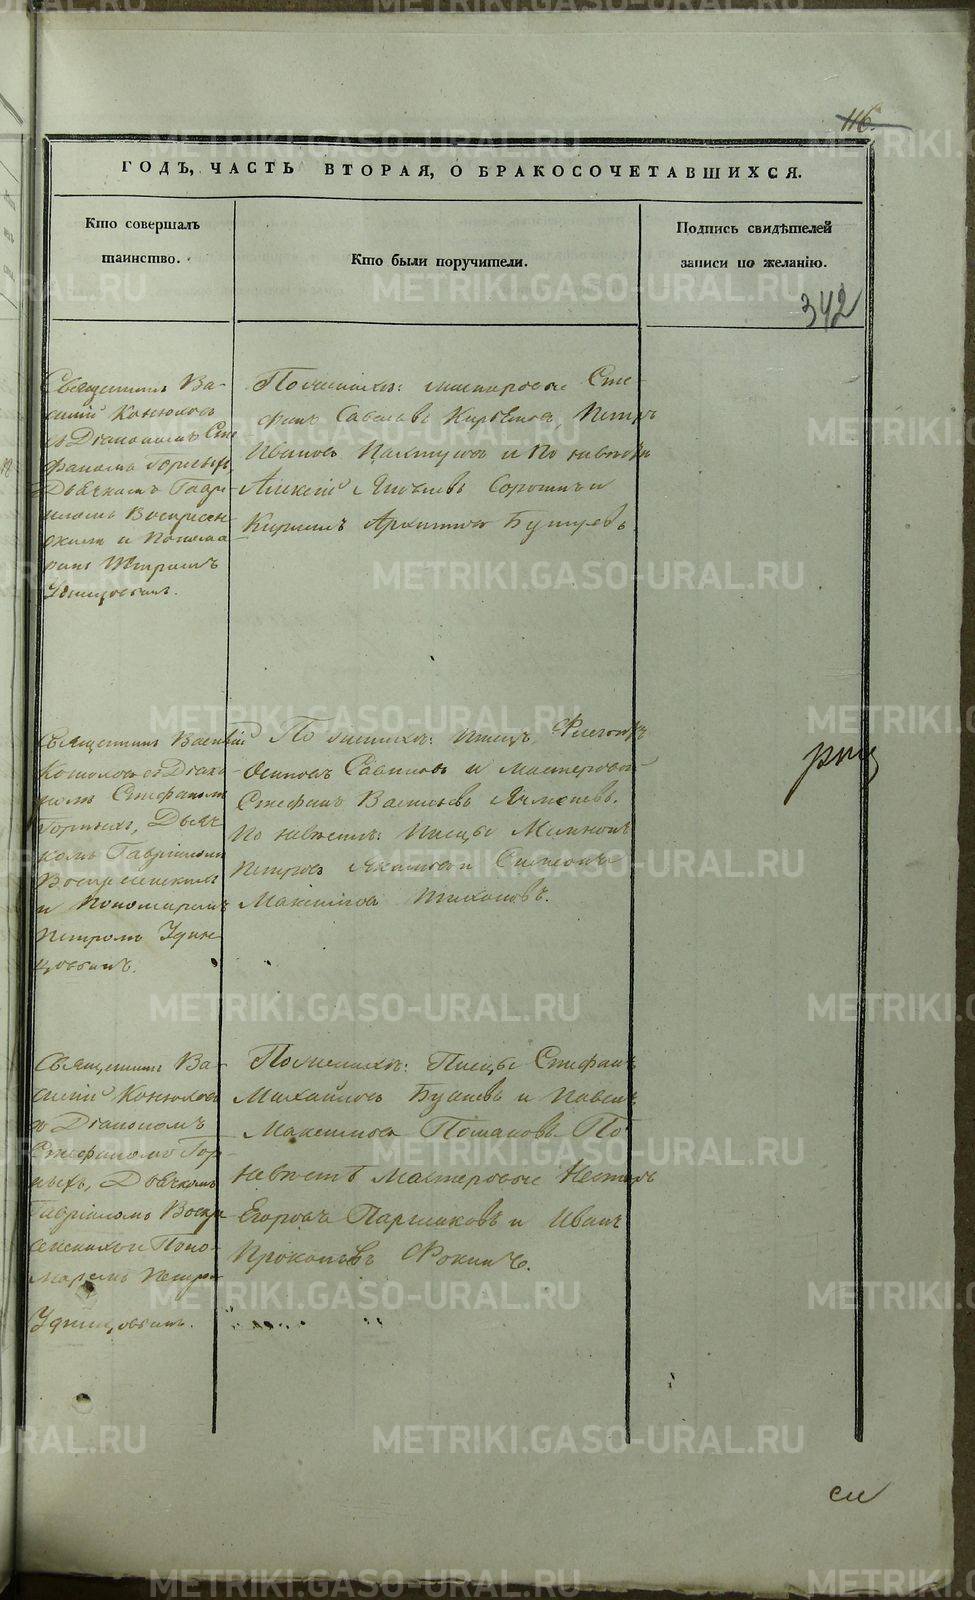 116.
ГОДЪ, ЧАСТЬ ВТОРАЯ, О БРАКОСОЧЕТАВШИХСЯ.
Кто совершалъ
таинство.
Кто были поручители.
Подпись свидѣтелей
записи по желанію.
342
Священникъ Ва-
силій Конюховъ
съ Діакономъ Сте
фаномъ Горныхъ
Дьячкомъ Гаврі
иломъ Воскресен
скимъ и Понома
ремъ Петромъ
Удинцовымъ.
По женихѣ: мастеровые Сте-
фанъ Савельевъ, Петръ
Ивановъ и По невѣстѣ
Алексѣй Яковлевъ Сорокинъ и
Кириллъ Архиповъ
Священникъ Василій
Конюховъ съ Діако
номъ Стефаномъ
Горныхъ, Дьяч
комъ Гавріиломъ
Воскресенскимъ
и Пономаремъ
Петромъ Удин
цовымъ.
По женихѣ: писецъ
Осиповъ Савиновъ и мастеровой
Стефанъ Васильевъ Ячменевъ.
По невѣстѣ: писцы
Петровъ и Симеонъ
Максимовъ Тихановъ.
рищ
Священникъ Ва-
силій Конюховъ
съ Діакономъ
Стефаномъ Гор-
ныхъ, Дьячкомъ
Гавріиломъ Воскре
сенскимъ и Поно-
маремъ Петро
Удинцовымъ.
По женихѣ: Писцы Стефанъ
Михайловъ и Павелъ
Максимовъ По
невѣстѣ Мастеровые Несторъ
Егоровъ Паршаковъ и Иванъ
Прокопьевъ Фокинъ.
си
METRIKI.GASO-URAL.RU